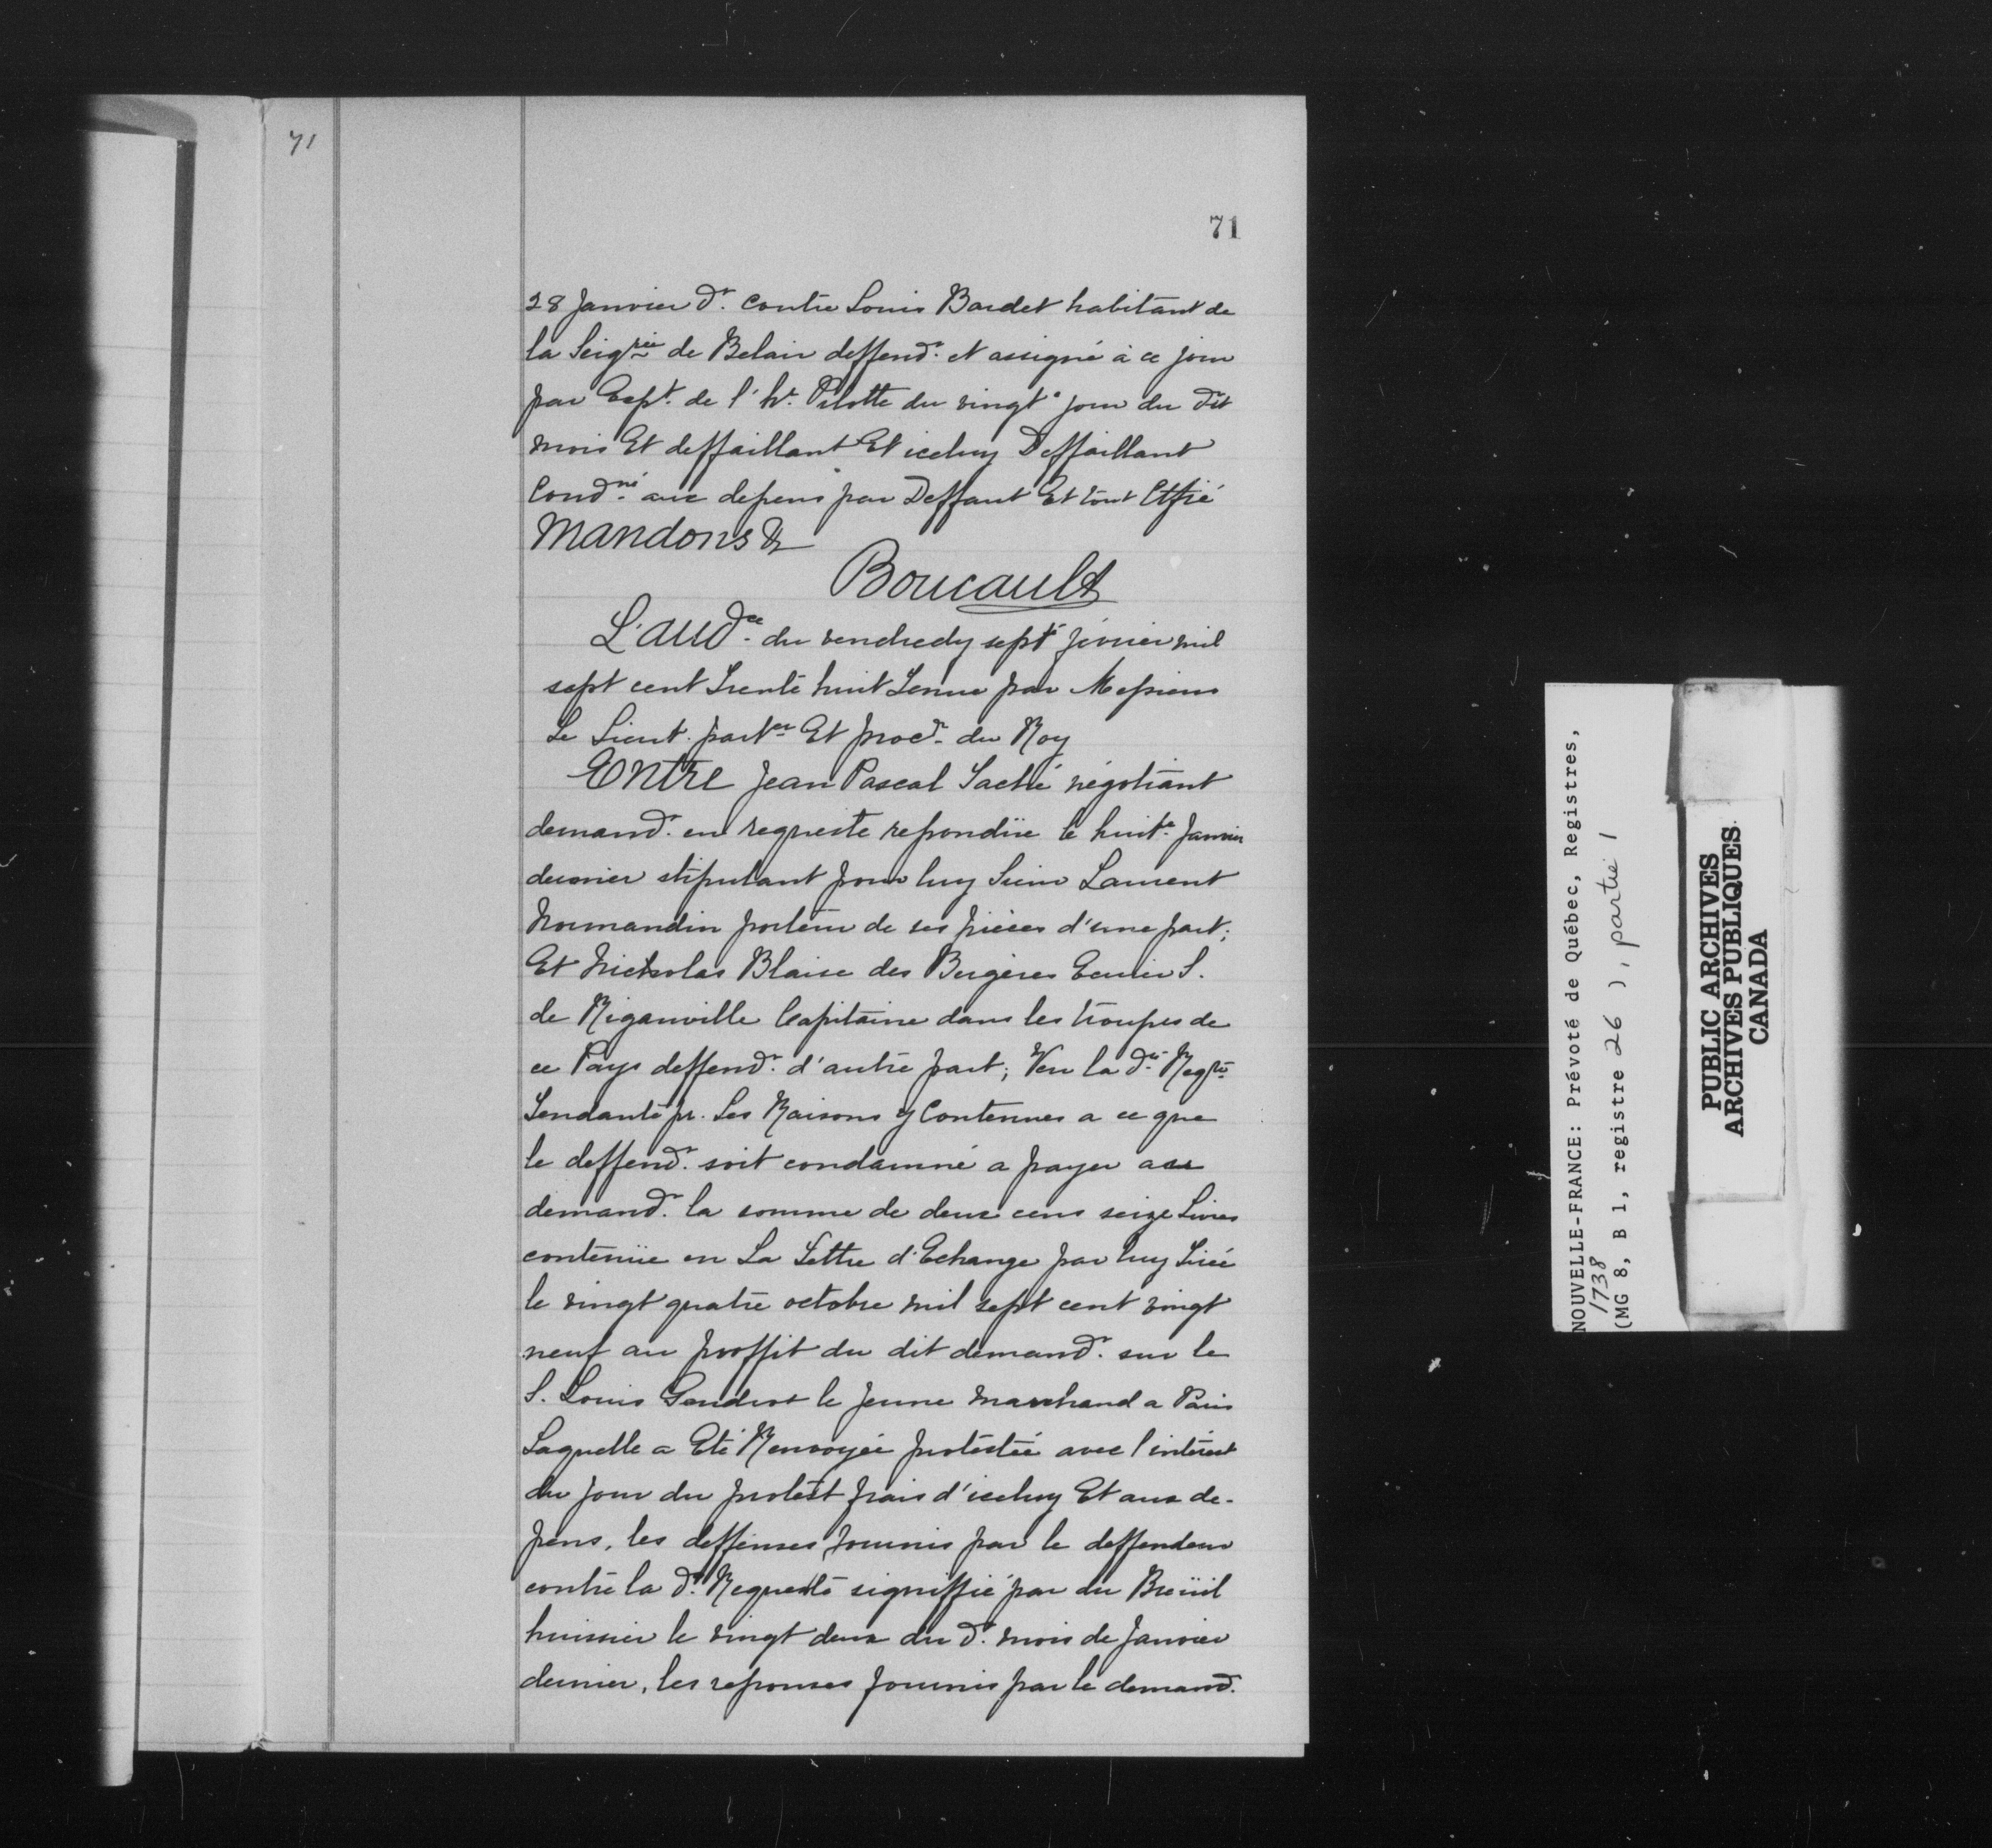 71
71
28 Janvier dr. contre Louis Bardet habitant de
la Seigrie de Belair deffendr. et assigné à ce jour
par Expt. de l'hr. Pilotte du vingte jour du dit
mois Et deffaillant Et iceluy Deffaillant
Condné aux depens par Deffaut Et sont
Mandons &
Boucault
L'audce du vendredy sept février mil
sept cent Trente huit Tenue par Messieurs
Le Lieut. parter Et procr du Roy
Entre Jean Pascal Taché négotiant
demandr. en requeste repondüe le huite. Janvier
dernier stipulant pour luy Sieur Laurent
Normandin porteur de ses pièces d'une part;
Et Nicholas Blaise des Bergères Ecuier S.
de Rigauville Capitaine dans les troupes de
ce Pays deffendr. d'autre part; Veu la dte Reqte
Tendante pr. les Raisons y Contenues a ce que
le deffendr. soit condamné a payer au
demandr. la somme de deux cens seize Livres
contenüe en La Lettre d'Echange par luy Tirée
le vingt quatre octobre mil sept cent vingt
neuf au proffit du dit demandr. sur le
S. Louis Gendrot le Jeune Marchand a Paris
Laquelle a Eté Renvoyée protestée avec l'intérest
du jour du protest frais d'iceluy Et aux de-
pens, les deffenses fournis par le deffendeur
contre la dt. Requeste signiffié par du Breüil
huissier le vingt deux du dt. mois de Janvier
dernier, les reponses fournis par le demandr.
NOUVELLE-FRANCE: Prévoté de Québec, Registres,
1738
(MG 8, B 1, registre 26 ), partie 1
PUBLIC ARCHIVES
ARCHIVES PUBLIQUES
CANADA